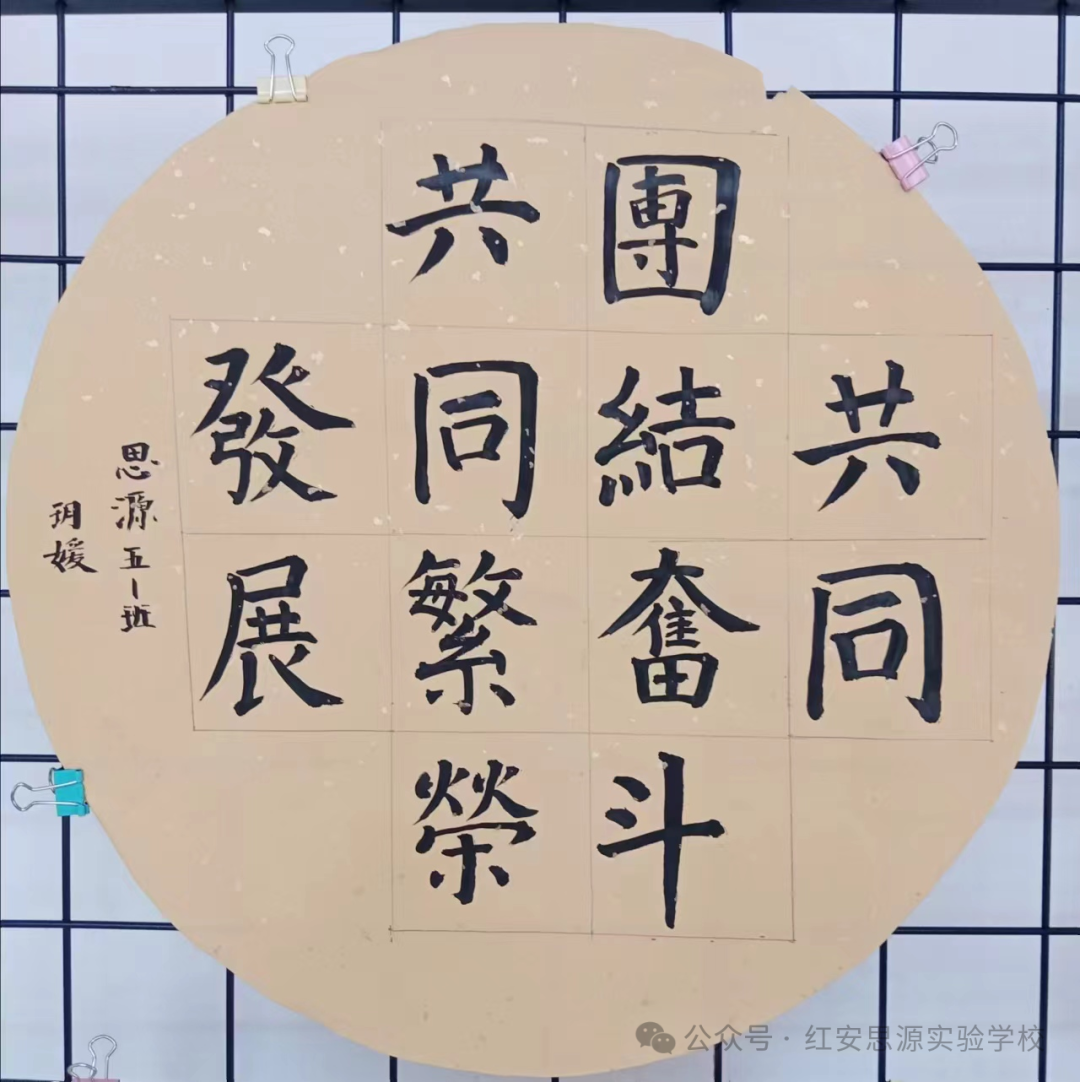 共同
團結奮斗
共同繁榮
發展
思源五一班
玥媛
公众号·红安思源实验学校